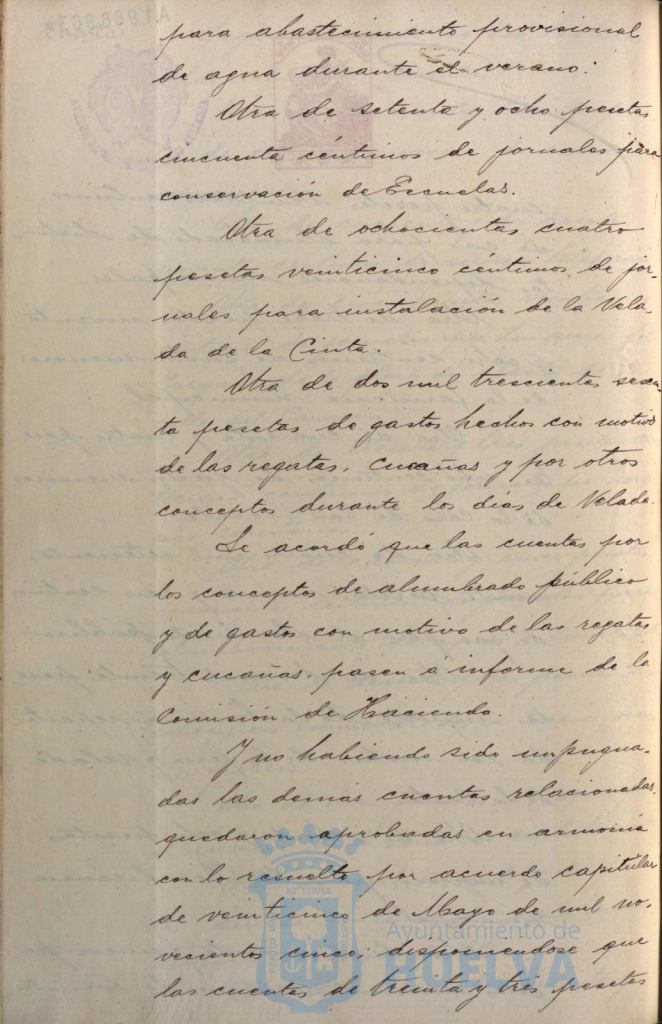 para abastecimiento provisional
de agua durante el verano.
Otra de setenta y ocho pesetas
cincuenta céntimos de jornales para
conservación de Escuelas.
Otra de ochocientas cuatro
pesetas veinticinco céntimos de jor-
nales para instalación de la Vela-
da de la Cinta.
Otra de dos mil trescientas sesen-
ta pesetas de gastos hechos con motivo
de las regatas, cucañas y por otros
conceptos durante los días de Velada.
Se acordó que las cuentas por
los conceptos de alumbrado público
y de gastos con motivo de las regatas
y cucañas, pasen á informe de la
Comisión de Hacienda.
Y no habiendo sido impugna-
das las demás cuentas relacionadas,
quedaron aprobadas en armonía
con lo resuelto por acuerdo capitular
de veinticinco de Mayo de mil no-
vecientos cinco, disponiendose que
las cuentas de treinta y tres pesetas
Ayuntamiento de
HUELVA